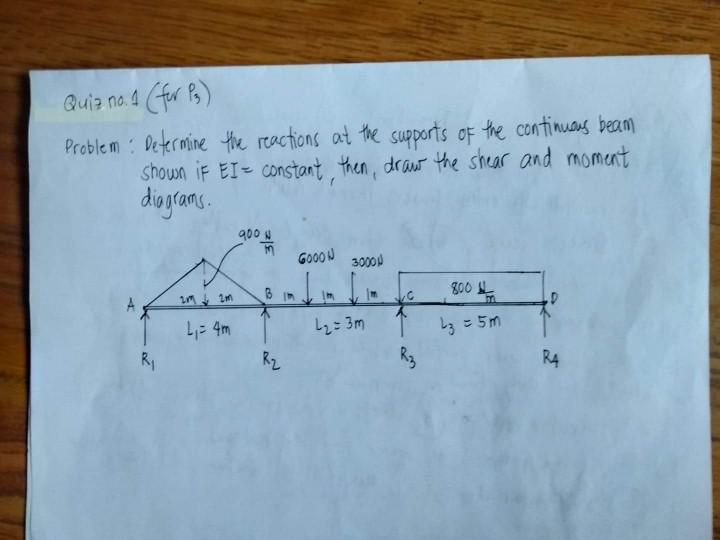 Quiz no. 1 (for P3)
Problem : Determine the reactions at the supports of the continuous beam
shown if EI = constant, then, draw the shear and moment
diagrams.
900 N/m
6000N 3000N
2m 2m B 1m 1m 1m C 800 N/m
A D
L1 = 4m L2 = 3m L3 = 5m
R1 R2 R3 R4